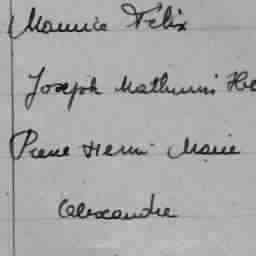 Maurice Félix
Joseph Mathurin He
Pierre Henri Marie
Alexandre